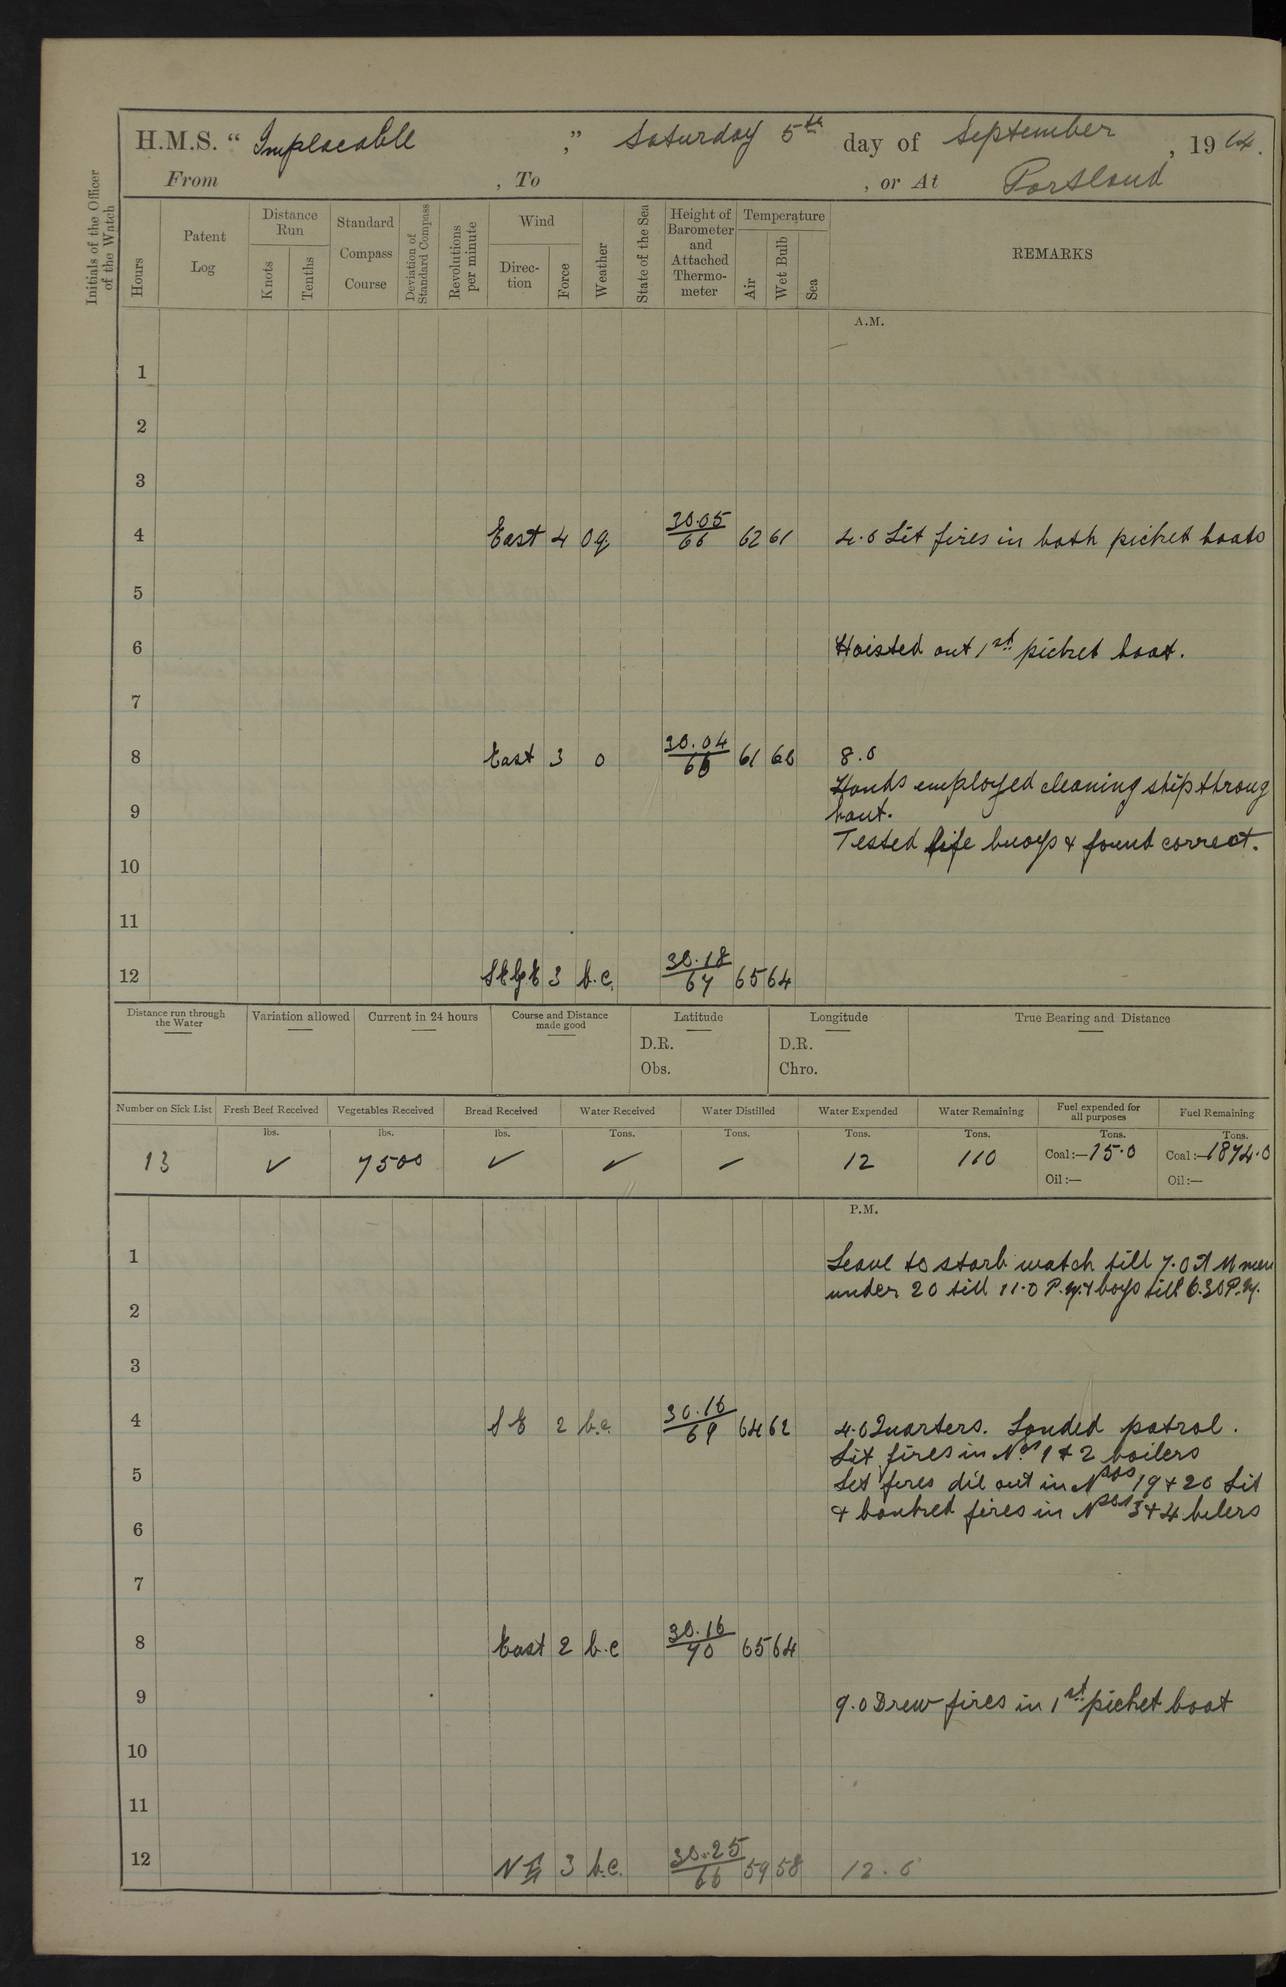 H.M.S. “ Implacable ” , Saturday 5th day of September , 1914.
From , To , or At Portland
Initials of the Officer of the Watch
Hours
Patent Log
Distance Run
Knots
Tenths
Standard Compass Course
Deviation of Standard Compass
Revolutions per minute
Wind
Direc-tion
Force
Weather
State of the Sea
Height of Barometer and Attached Thermo-meter
Temperature
Air
Wet Bulb
Sea
REMARKS
A.M.
1
2
3
4 East 4 o q 30.05/66 62 61 4.0 Lit fires in both picket boats
5
6 Hoisted out 1st picket boat.
7
8 East 3 o 30.04/66 61 60 8.0
Hands employed cleaning ship throug
9 hout.
Tested life buoys & found correct.
10
11
12 SEbyE 3 b.c. 30.18/67 65 64
Distance run through the Water
Variation allowed
Current in 24 hours
Course and Distance made good
Latitude
D.R.
Obs.
Longitude
D.R.
Chro.
True Bearing and Distance
Number on Sick List Fresh Beef Received Vegetables Received Bread Received Water Received Water Distilled Water Expended Water Remaining Fuel expended for all purposes Fuel Remaining
lbs. lbs. lbs. Tons. Tons. Tons. Tons. Tons. Tons.
13 ✓ 7500 ✓ ✓ ✓ 12 110 Coal:—15.0 Coal:—1874.0
Oil:— Oil:—
P.M.
1 Leave to starb. watch till 7.0 A M men
under 20 till 11.0 P.M. & boys till 6.30 P.M.
2
3
4 S E 2 b.c. 30.16/69 64 62 4.0 Quarters. Landed patrol.
Lit fires in Nos 1 & 2 boilers
5 Let fires die out in Nos 19 & 20 Lit
& banked fires in Nos 3 & 4 boilers
6
7
8 East 2 b.c 30.16/70 65 64
9 9.0 Drew fires in 1st picket boat
10
11
12 N E 3 b.c. 30.25/66 59 58 12.0